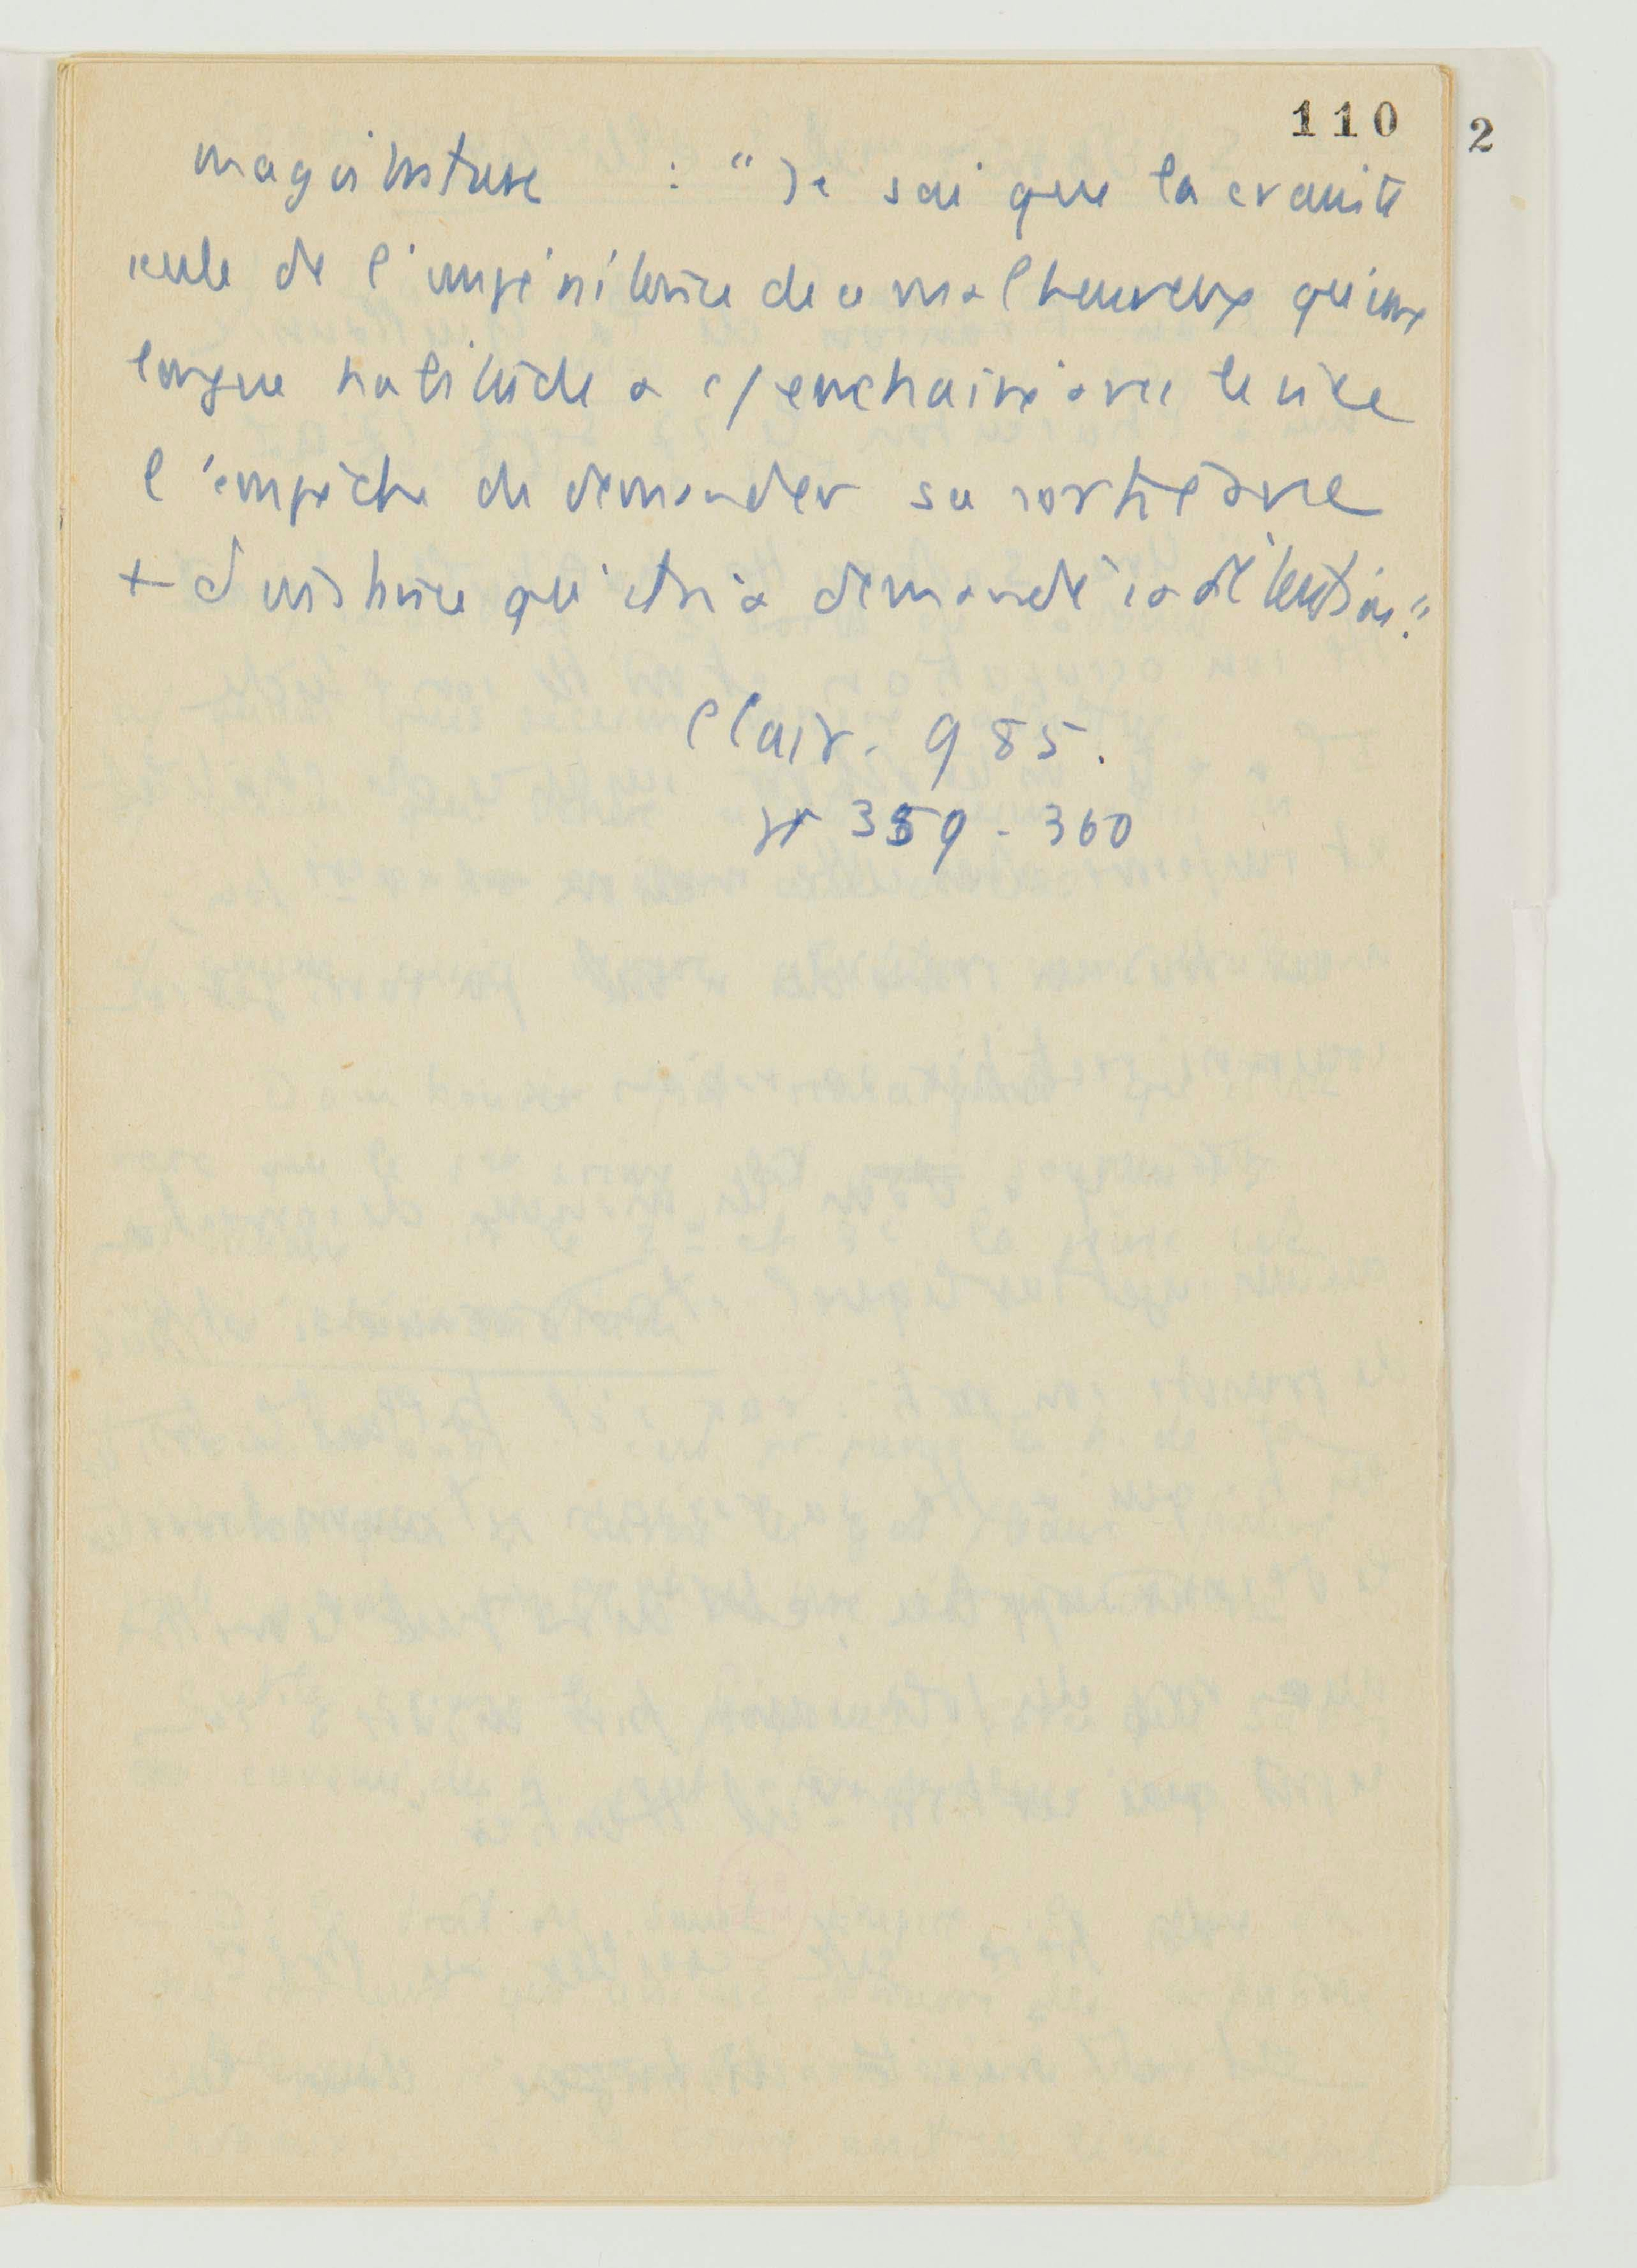 110
2
magistrature : "Je sai que la crainte
seule de l'impénitence de ce malheureux qu'une
longue habitude a enchainé avec le vice
l'empêche de demander sa
+ d'instance qu'elle n'a demandé sa détention."
Clair. 985.
359-360